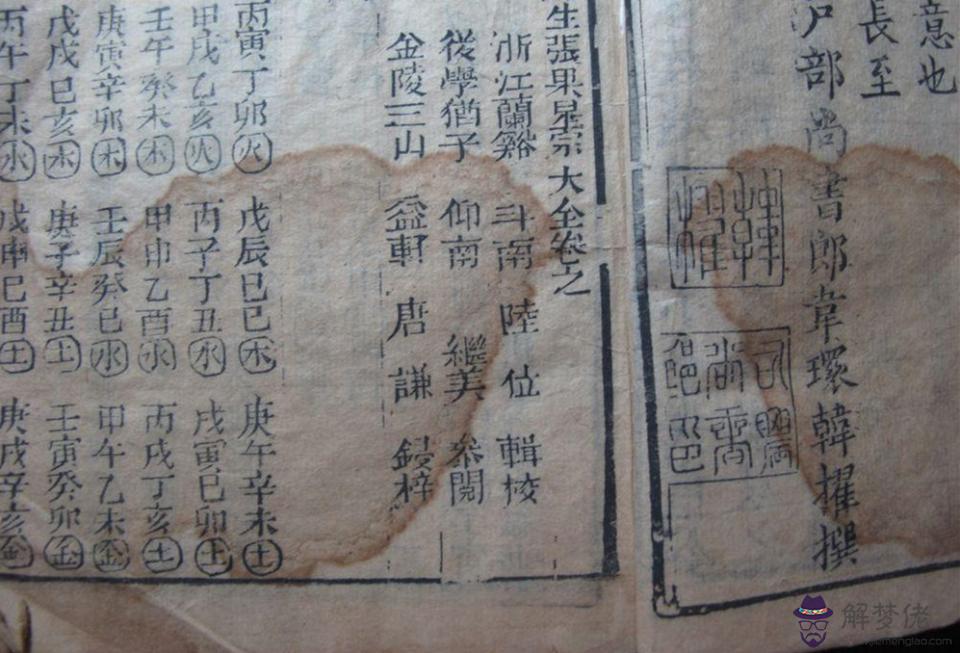 意也
長至
戶部尚書郎韋環韓擢撰
韓擢
生張果星宗大全卷之
浙江蘭谿 斗南 陸位 輯校
從學猶子 仰南 繼美 參閱
金陵三山 益軒 唐謙 鋟梓
丙寅丁卯火 戊辰己巳木 庚午辛未土
甲戌乙亥火 丙子丁丑水 戊寅己卯土
壬午癸未木 甲申乙酉水 丙戌丁亥土
庚寅辛卯木 壬辰癸巳水 甲午乙未金
戊戌己亥木 庚子辛丑土 壬寅癸卯金
丙午丁未水 戊申己酉土 庚戌辛亥金
解梦佬